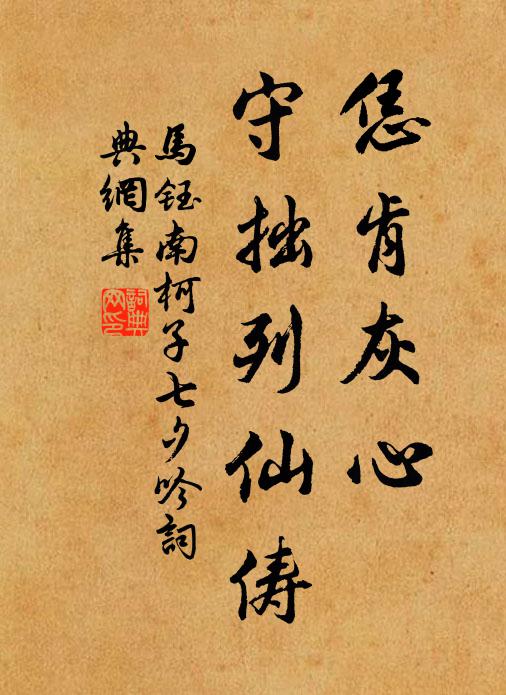 恁肯灰心
守拙列仙俦
馬鈺南柯子七夕吟詞
典網集
詞典網印